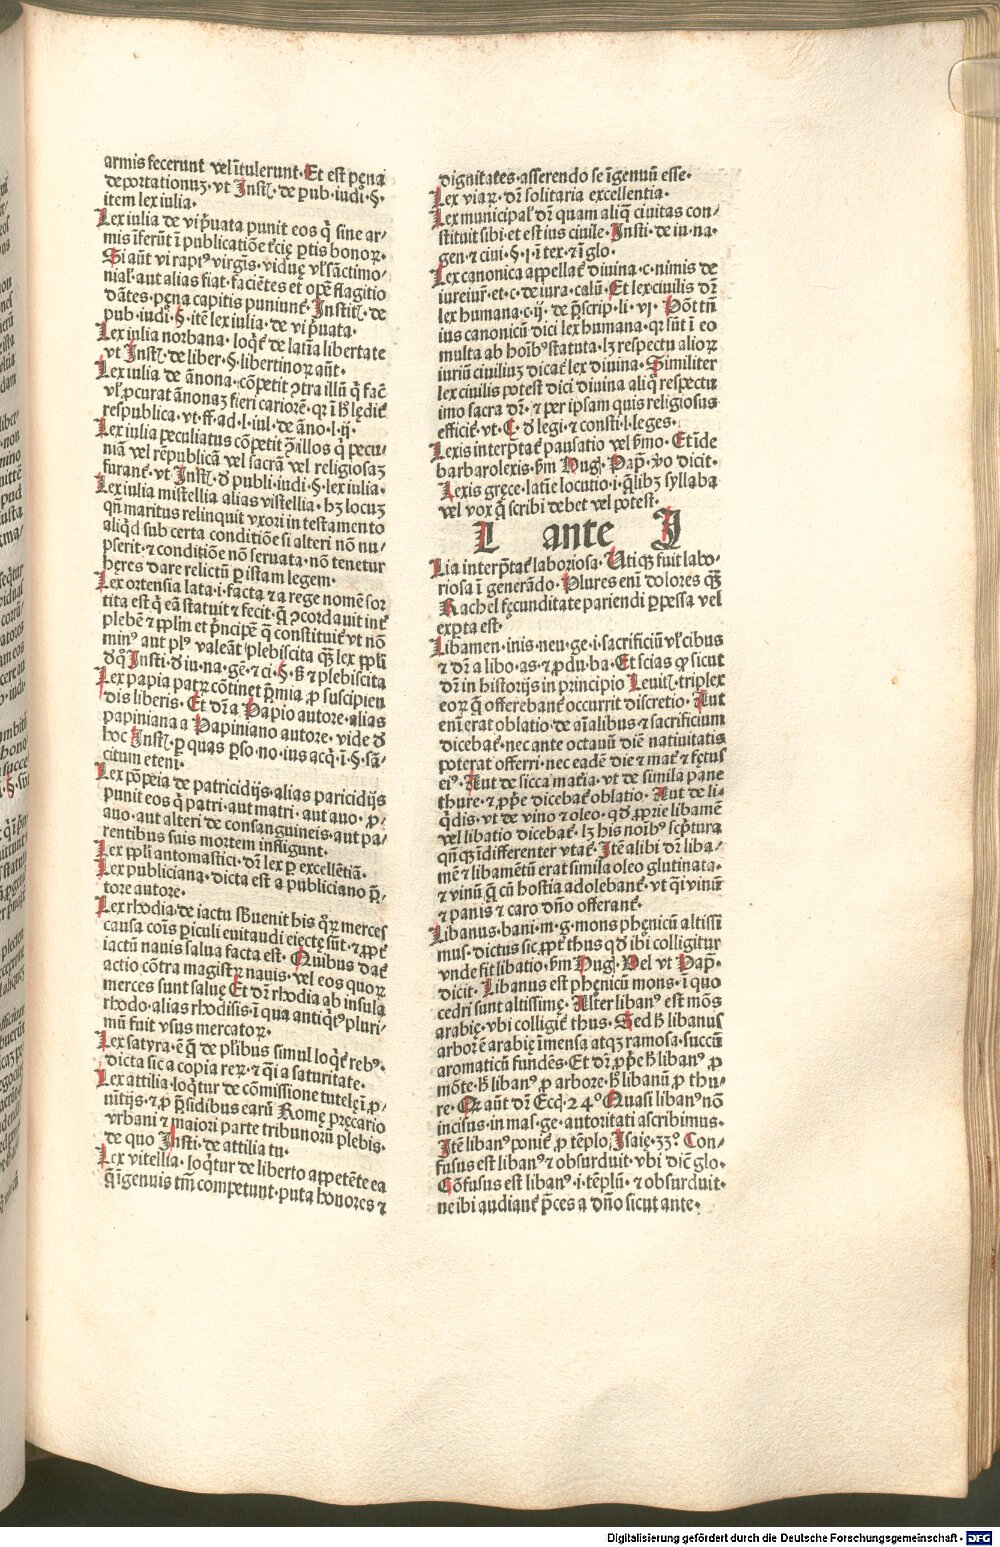 armis fecerunt vel ĩtulerunt. Et est pena
deportationuʒ. vt Instĩ. de pub. iudi. §.
item lex iulia.
Lex iulia de vi p̃uata punit eos q̃ sine ar/
mis ĩferũt ĩ publicatiõe tʼcię ꝑtis honoꝝ.
Si aũt vi rapiꝰ virgis. viduę vľ sãctimo/
niaľ. aut alias fiat. faciẽtes et opẽ flagitio
dãtes. pęna capitis puniunť. Instiť. de
pub. iudi. §. itẽ lex iulia. de vi p̃uata.
Lex iulia norbana. loqť de latĩa libertate
vt Instĩ. de liber. §. libertinoꝝ aũt.
Lex iulia de ãnona. cõpetit ↄtra illũ q̃ fač
vľ ꝓcurat ãnonaʒ fieri cariorẽ. qꝛ ĩ h̃ lędiť
respublica. vt. ff. ad. l. iul. de ãno. l. ij.
Lex iulia peculiatus cõpetit ↄ̃ illos q̃ pecu/
niã vel rẽpublicã vel sacrã vel religiosaʒ
furanť. vt Instĩ. d̃ publi. iudi. §. lex iulia.
Lex iulia mistellia alias vistellia. hʒ locuʒ
qñ maritus relinquit vxori in testamento
aliqd sub certa conditiõe si alteri nõ nu/
pserit. ⁊ conditiõe nõ seruata. nõ tenetur
hęres dare relictũ ꝑ istam legem.
Lex ortensia lata. i. facta ⁊ a rege nomẽ sor
tita est q̃ eã statuit ⁊ fecit. q̃ ↄcordauit inť
plebẽ ⁊ pp̃lm et p̃ncipẽ q̃ constituiť vt nõ
minꝰ aut plꝰ valeãt plebiscita q̃ʒ lex pp̃li
d̃ qͦ Insti. d̃ iu. na. gẽ. ⁊ ci. §. h̃ ⁊ plebiscita
Lex papia patꝝ cõtinet p̃mia ꝓ suscipien
dis liberis. Et dr̃ a Papio autore. alias
papiniana a Papiniano autore. vide d̃
hoc Instĩ. ꝑ quas ꝑso. no. ius acq̃. i. §. sã/
citum eteni.
Lex põpeia de patricidijs. alias paricidijs
punit eos q̃ patri. aut matri. aut auo. ꝓ/
auo. aut alteri de consanguineis. aut pa/
rentibus suis mortem infligunt.
Lex pp̃li antomastici. dr̃ lex ꝑ excellẽtiã.
Lex publiciana. dicta est a publiciano p̃/
tore autore.
Lex rhodia. de iactu sb̃uenit his q̃ꝝ merces
causa cõis ꝑiculi euitaudi eiectę sũt. ⁊ ꝓpť
iactũ nauis salua facta est. Quibus dať
actio cõtra magistꝝ nauis. vel eos quoꝝ
merces sunt saluę Et dr̃ rhodia ab insula
rhodo. alias rhodisis. ĩ qua antiq̃tꝰ pluri/
mũ fuit vsus mercatoꝝ.
Lex satyra. ẽ q̃ de pľibus simul loqť rebꝰ.
dicta sic a copia reꝝ. ⁊ q̃i a saturitate.
Lex attilia. loq̃tur de cõmissione tutelę ĩ ꝓ/
uĩtijs. ⁊ ꝓ p̃sidibus earũ Romę pręcario
vrbani ⁊ maiori parte tribunorũ plebis.
de quo Insti. de attilia tu.
Lex vitellia. loq̃tur de liberto appetẽte ea
q̃ ĩgenuis tm̃ competunt. puta honores ⁊
dignitates. asserendo se ĩgenuũ esse.
Lex viaꝝ. dr̃ solitaria excellentia.
Lex municipaľ dr̃ quam aliq̃ ciuitas con/
stituit sibi. et est ius ciuile. Insti. de iu. na.
gen. ⁊ ciui. §. i. ĩ tex. ⁊ ĩ glo.
Lex canonica appellať diuina. c. nimis de
iureiurͭ. et. c. de iura. calũ. Et lex ciuilis dr̃
lex humana. c. ij. de p̃scrip. li. vj. Põt tñ
ius canonicũ dici lex humana. qꝛ sũt ĩ eo
multa ab hoĩbꝰ statuta. lʒ respectu alioꝝ
iuriũ ciuiliuʒ dicať lex diuina. Similiter
lex ciuilis potest dici diuina aliq̃ respectu
imo sacra dr̃. ⁊ per ipsam quis religiosus
efficiť. vt. C. d̃ legi. ⁊ consti. l. leges.
Lexis interp̃tať pausatio vel ꝟmo. Et ĩde
barbarolexis. ẜm Hug. Pap. ꝟo dicit.
Lexis gręce. latĩe locutio. i. q̃libʒ syllaba
vel vox q̃ scribi debet vel potest.
L ante I
Lia interp̃tať laboriosa. Vtiqʒ fuit labo/
riosa ĩ generãdo. Plures enĩ dolores q̃ʒ
Rachel fęcunditate pariendi ꝑpessa vel
exꝑta est.
Libamen. inis. neu. ge. i. sacrificiũ vľ cibus
⁊ dr̃ a libo. as. ⁊ ꝓdu. ba. Et scias ꝙ sicut
dr̃ in historijs in principio Leuiť. triplex
eoꝝ q̃ offerebanť occurrit discretio. Aut
enĩ erat oblatio. de aĩalibus ⁊ sacrificium
dicebať. nec ante octauũ diẽ natiuitatis
poterat offerri. nec eadẽ die ⁊ mať ⁊ fętus
eiꝰ. Aut de sicca matĩa. vt de simila pane
thure. ⁊ ꝓp̃e dicebať oblatio. Aut de li/
q̃dis. vt de vino ⁊ oleo. qď proprie libamẽ
vel libatio dicebať. lʒ his noĩbꝰ scp̃tura
qñqʒ ĩdifferenter vtať. Itẽ alibi dr̃ liba/
mẽ ⁊ libamẽtũ erat simila oleo glutinata.
⁊ vinũ q̃ cũ hostia adolebanť. vt q̃i vinũ
⁊ panis ⁊ caro dño offeranť.
Libanus. bani. m. g. mons phęnicũ altissi
mus. dictus sic ꝓpť thus qď ibi colligitur
vnde fit libatio. ẜm Hug. Vel vt Pap.
dicit. Libanus est phęnicũ mons. ĩ quo
cedri sunt altissimę. Alter libanꝰ est mõs
arabię. vbi colligiť thus. Sed h̃ libanus
arbor ẽ arabię ĩmensa atqʒ ramosa. succũ
aromaticũ fundẽs. Et dr̃ ꝓp̃e h̃ libanꝰ ꝓ
mõte. h̃ libanꝰ ꝓ arbore. hͦ libanũ ꝓ thu/
re. Qꝛ aũt dr̃ Ecq̃. 24ͦ Quasi libanꝰ nõ
incisus. in mas. ge. autoritati ascribimus.
Itẽ libanꝰ poniť ꝓ tẽplo. Isaię. 33ͦ. Con/
fusus est libanꝰ ⁊ obsurduit. vbi diẽ glo.
Cõfusus est libanꝰ. i. tẽplũ. ⁊ obsurduit.
ne ibi audianť p̃ces a dño sicut ante.
Digitalisierung gefördert durch die Deutsche Forschungsgemeinschaft - DFG